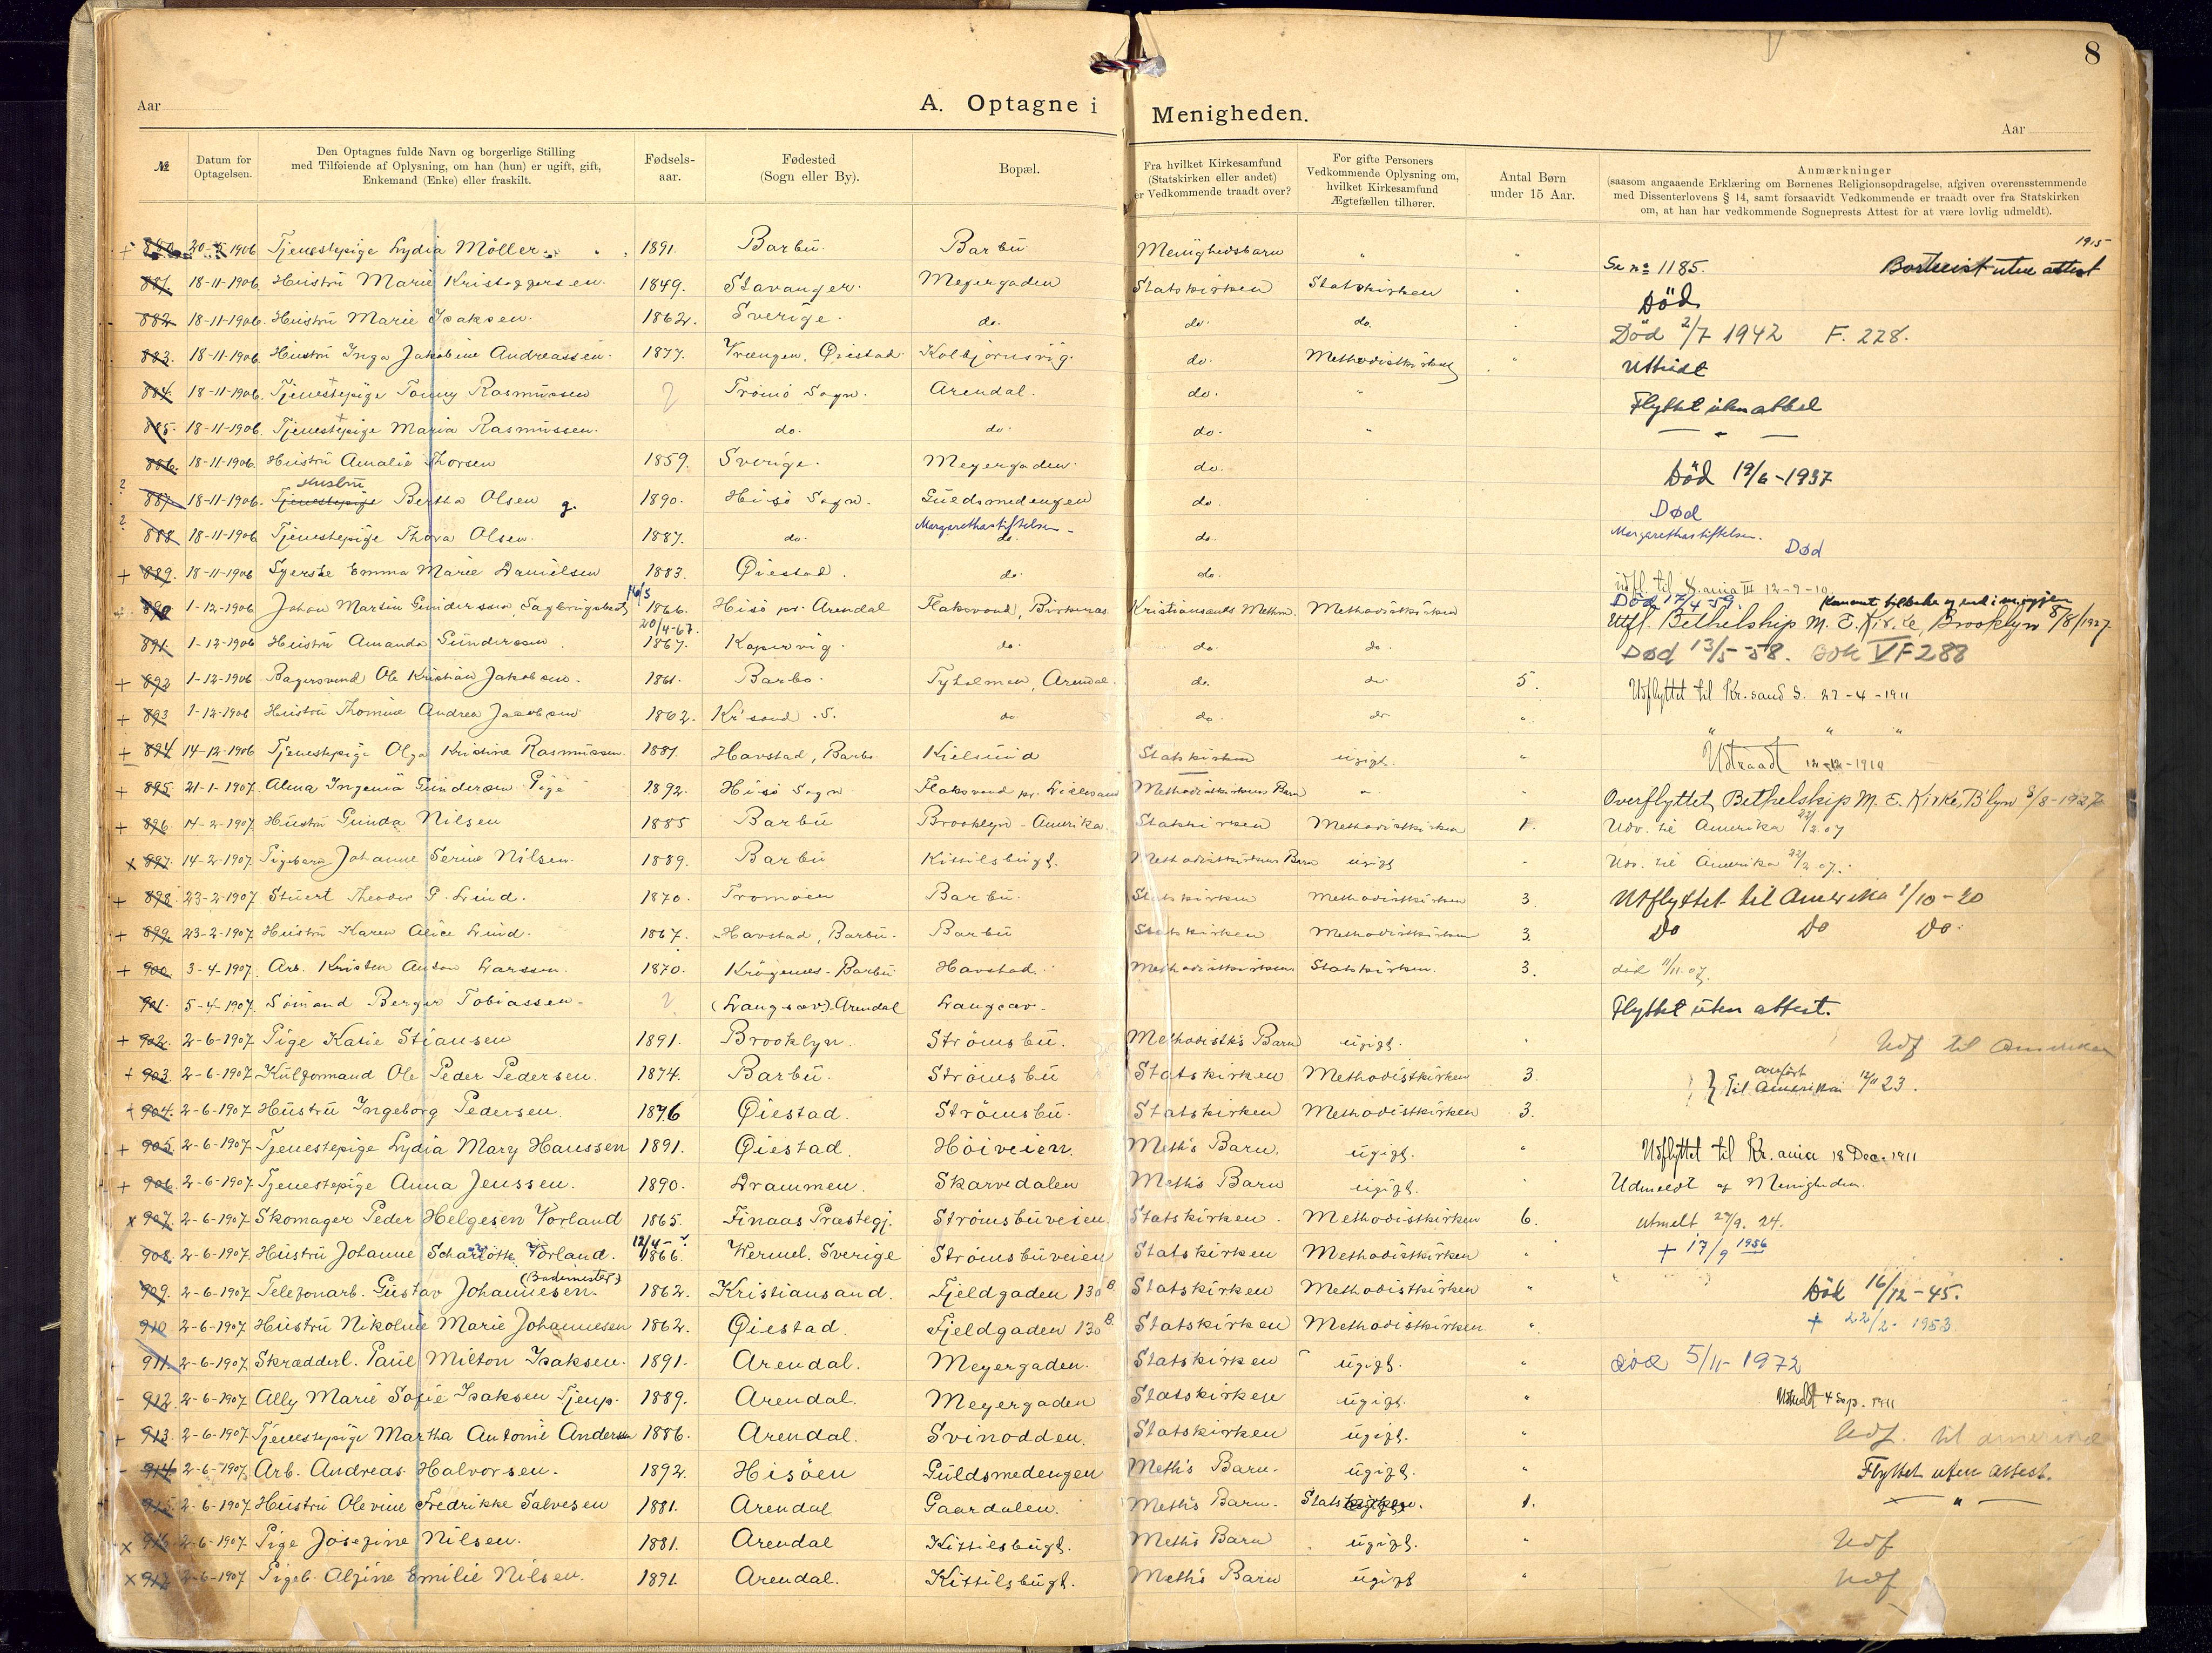 8
Aar A. Optagne i Menigheden. Aar
№ Datum for Optagelsen. Den Optagnes fulde Navn og borgerlige Stilling med Tilføiende af Oplysning, om han (hun) er ugift, gift, Enkemand (Enke) eller fraskilt. Fødselsaar. Fødested (Sogn eller By). Bopæl. Fra hvilket Kirkesamfund (Statskirken eller andet) er Vedkommende traadt over? For gifte Personers Vedkommende Oplysning om, hvilket Kirkesamfund Ægtefællen tilhører. Antal Børn under 15 Aar. Anmærkninger (saasom angaaende Erklæring om Børnenes Religionsopdragelse, afgiven overensstemmende med Dissenterlovens § 14, samt forsaavidt Vedkommende er traadt over fra Statskirken om, at han har vedkommende Sogneprests Attest for at være lovlig udmeldt).
+ 880. 1906 Tjenestepige Lydia Möller 1891. Barbu. Barbu Menighedsbarn " " Se no 1185. Bortreist uten attest 1915
881. 18-11-1906. Hustru Marie Kristoggersen. 1849. Stavanger. Meyergaden Statskirken Statskirken " Död
882 18-11-1906. Hustru Marie Isaksen. 1862. Sverige. do. do. do. Död 2/7 1942 F. 228.
883. 18-11-1906. Hustru Inga Jakobine Andreassen. 1877. Vrængen, Øiestad. Kolbjørnsvig. do. Methodistkirken "
884. 18-11-1906. Tjenestepige Tonny Rasmussen ? Tromö Sogn. Arendal. do. " Flyttet uten attest
885. 18-11-1906. Tjenestepige Maria Rasmussen. do. do. do. " — " —
886. 18-11-1906. Hustru Amalie Thorsen 1859. Sverige. Meyergaden. do. Död 19/6-1937
? 887 18-11-1906. Tjenestepige Hustru Bertha Olsen g. 1890. Hisö Sogn. Guldsmedengen do. Død
? 888 18-11-1906 Tjenestepige Thora Olsen. 1887. do. do. Margarethastiftelsen do. Margarethastiftelsen. Død
+ 889. 18-11-1906 Syerske Emma Marie Danielsen 1883. Øiestad. do. do. udfl. til Kr.ania III 12-9-10.
890 1-12-1906 Johan Martin Gundersen, 1866. Hisö pr. Arendal Flaksvand, Birkenas Kristiansands Methm. Methodistkirken Død 17/4-59. Utfl. Bethelship M. E. Kirke, Brooklyn 8/8/1927
891. 1-12-1906 Hustru Amanda Gundersen 20/4-67. 1867. Kopervig. do. do. do. Død 13/5-58. Bok V F 288
+ 892 1-12-1906 Bagersvend Ole Kristian Jakobsen. 1861. Barbo. Tyholmen, Arendal. do. do. 5. Udflyttet til Kr.sand S. 27-4-1911
+ 893 1-12-1906 Hustru Thomine Andrea Jacobsen 1862. Kr'sand. S. do. do. do " " " "
+ 894 14-12-1906 Tjenestepige Olga Kristine Rasmussen 1887. Havstad, Barbo. Kielsund Statskirken ugigt. " Udtraadt
+ 895. 21-1-1907. Alma Ingenia Gundersen Pige 1892. Hisö Sogn Flaksvand pr. Lillesand Methodistkirkens Barn " " Overflyttet, Bethelship M. E. Kirke, B'lyn 8/8-1927
+ 896. 14-2-1907. Hustru Gunda Nilsen 1885 Barbu Brooklyn-Amerika. Statskirken Methodistkirken 1. Udv. til Amerika 22/2.07
x 897. 14-2-1907. Pigebarn Johanne Serine Nilsen. 1889. Barbu Kittilsbugt. Methodistkirkens Barn ugigt " Udv. til Amerika 22/2.07.
+ 898. 23-2-1907. Stuert Theodor G. Lind. 1870. Tromöen Barbu. Statskirken Methodistkirken 3. Utflyttet til Amerika 1/10-20
+ 899. 23-2-1907. Hustru Karen Alice Lind. 1867. Havstad, Barbu. Barbu Statskirken Methodistkirken 3. Do Do Do.
+ 900. 3-4-1907. Arb. Kristen Anton Larssen. 1870. Krögenes-Barbu Havstad. Methodistkirken. Statskirken. 3. död 11/11.07.
901. 5-4-1907. Sömand Berger Tobiassen. ? (Langsæv) Arendal Langsæv. Flyttet uten attest.
+ 902. 2-6-1907. Pige Katie Stiansen 1891. Brooklyn. Strömsbu. Methodistk's Barn ugigt. " Udf til Amerika
+ 903. 2-6-1907. Kulformand Ole Peder Pedersen. 1874. Barbu. Strömsbu Statskirken Methodistkirken 3. } overfört til Amerika 12/11 23.
+ 904. 2-6-1907. Hustru Ingeborg Pedersen. 1876 Øiestad. Strömsbu. Statskirken Methodistkirken 3.
+ 905. 2-6-1907. Tjenestepige Lydia Mary Hanssen 1891. Øiestad. Höiveien. Meth's Barn. ugigt. " Udflyttet til Kr.ania 18 Dec. 1911
+ 906. 2-6-1907. Tjenestepige Anna Jenssen. 1890. Drammen. Skarvedalen Meth's Barn ugigt. " Udmeldt af Menigheden.
x 907. 2-6-1907. Skomager Peder Helgesen Vorland 1865. Finaas Præstegj. Strömsbuveien. Statskirken. Methodistkirken 6. utmelt 29/9. 24.
908. 2-6-1907. Hustru Johanne Scharlotte Vorland. 12/4- 1866. Werml. Sverige Strömsbuveien Statskirken Methodistkirken " + 17/9 1956
909. 2-6-1907. Telefonarb. Gustav Johannesen. (Bademester) 1862. Kristiansand. Fjeldgaden 130 B. Statskirken Methodistkirken " Död 16/12-45.
910 2-6-1907. Hustru Nikoline Marie Johannesen 1862. Øiestad. Fjeldgaden 130 B. Statskirken Methodistkirken " + 22/2-1953
911. 2-6-1907. Skrædderl. Paul Milton Isaksen. 1891. Arendal. Meyergaden. Statskirken ugigt. " død 5/11-1972
912. 2-6-1907. Ally Marie Sofie Isaksen Tjenp. 1889. Arendal. Meyergaden Statskirken ugigt. " Utmeldt 4 Sep. 1911
+ 913. 2-6-1907. Tjenestepige Martha Antonie Andersen 1886. Arendal. Svinodden. Statskirken ugigt. " Udf. til Amerika
914 2-6-1907. Arb. Andreas Halvorsen. 1892. Hisöen Guldsmedengen Meth's Barn. ugigt. " Flyttet uten attest.
915. 2-6-1907. Hustru Olevine Fredrikke Salvesen 1881. Arendal Gaardalen. Meth's Barn. Statskirken. 1. — " —
x 916. 2-6-1907. Pige Josefine Nilsen. 1881. Arendal Kittilsbugt. Meth's Barn ugigt. " Udf
x 917 2-6-1907. Pigeb. Alfine Emilie Nilsen. 1891. Arendal. Kittilsbugt. Meth's Barn ugigt " Udf